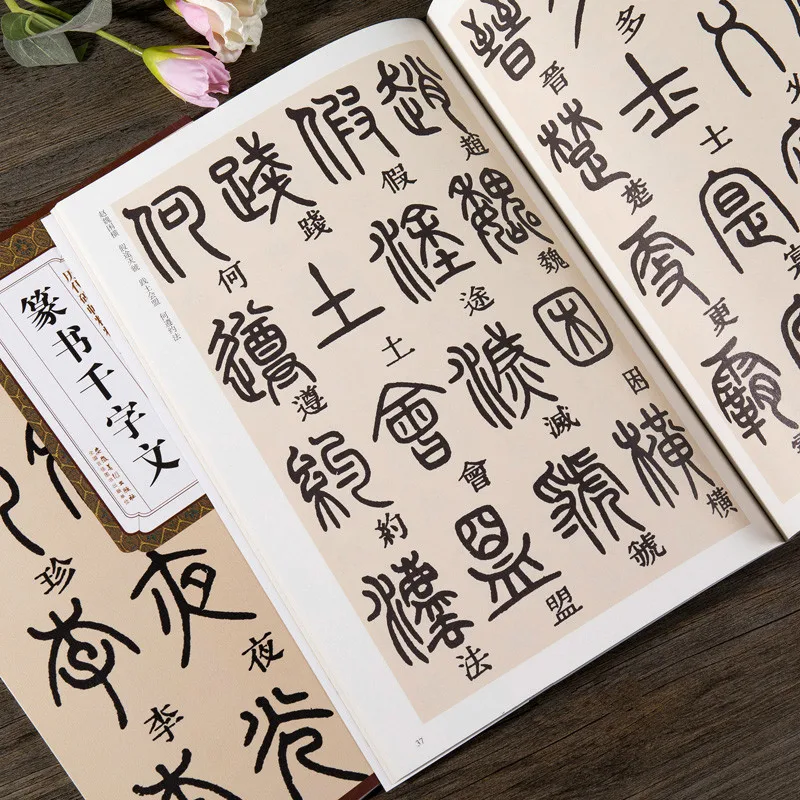 多士
晉楚更霸
趙魏困橫
假途滅虢
踐土會盟
何遵約法
赵魏困横 假途灭虢 践土会盟 何遵约法
37
篆书千字文
夜
珍李